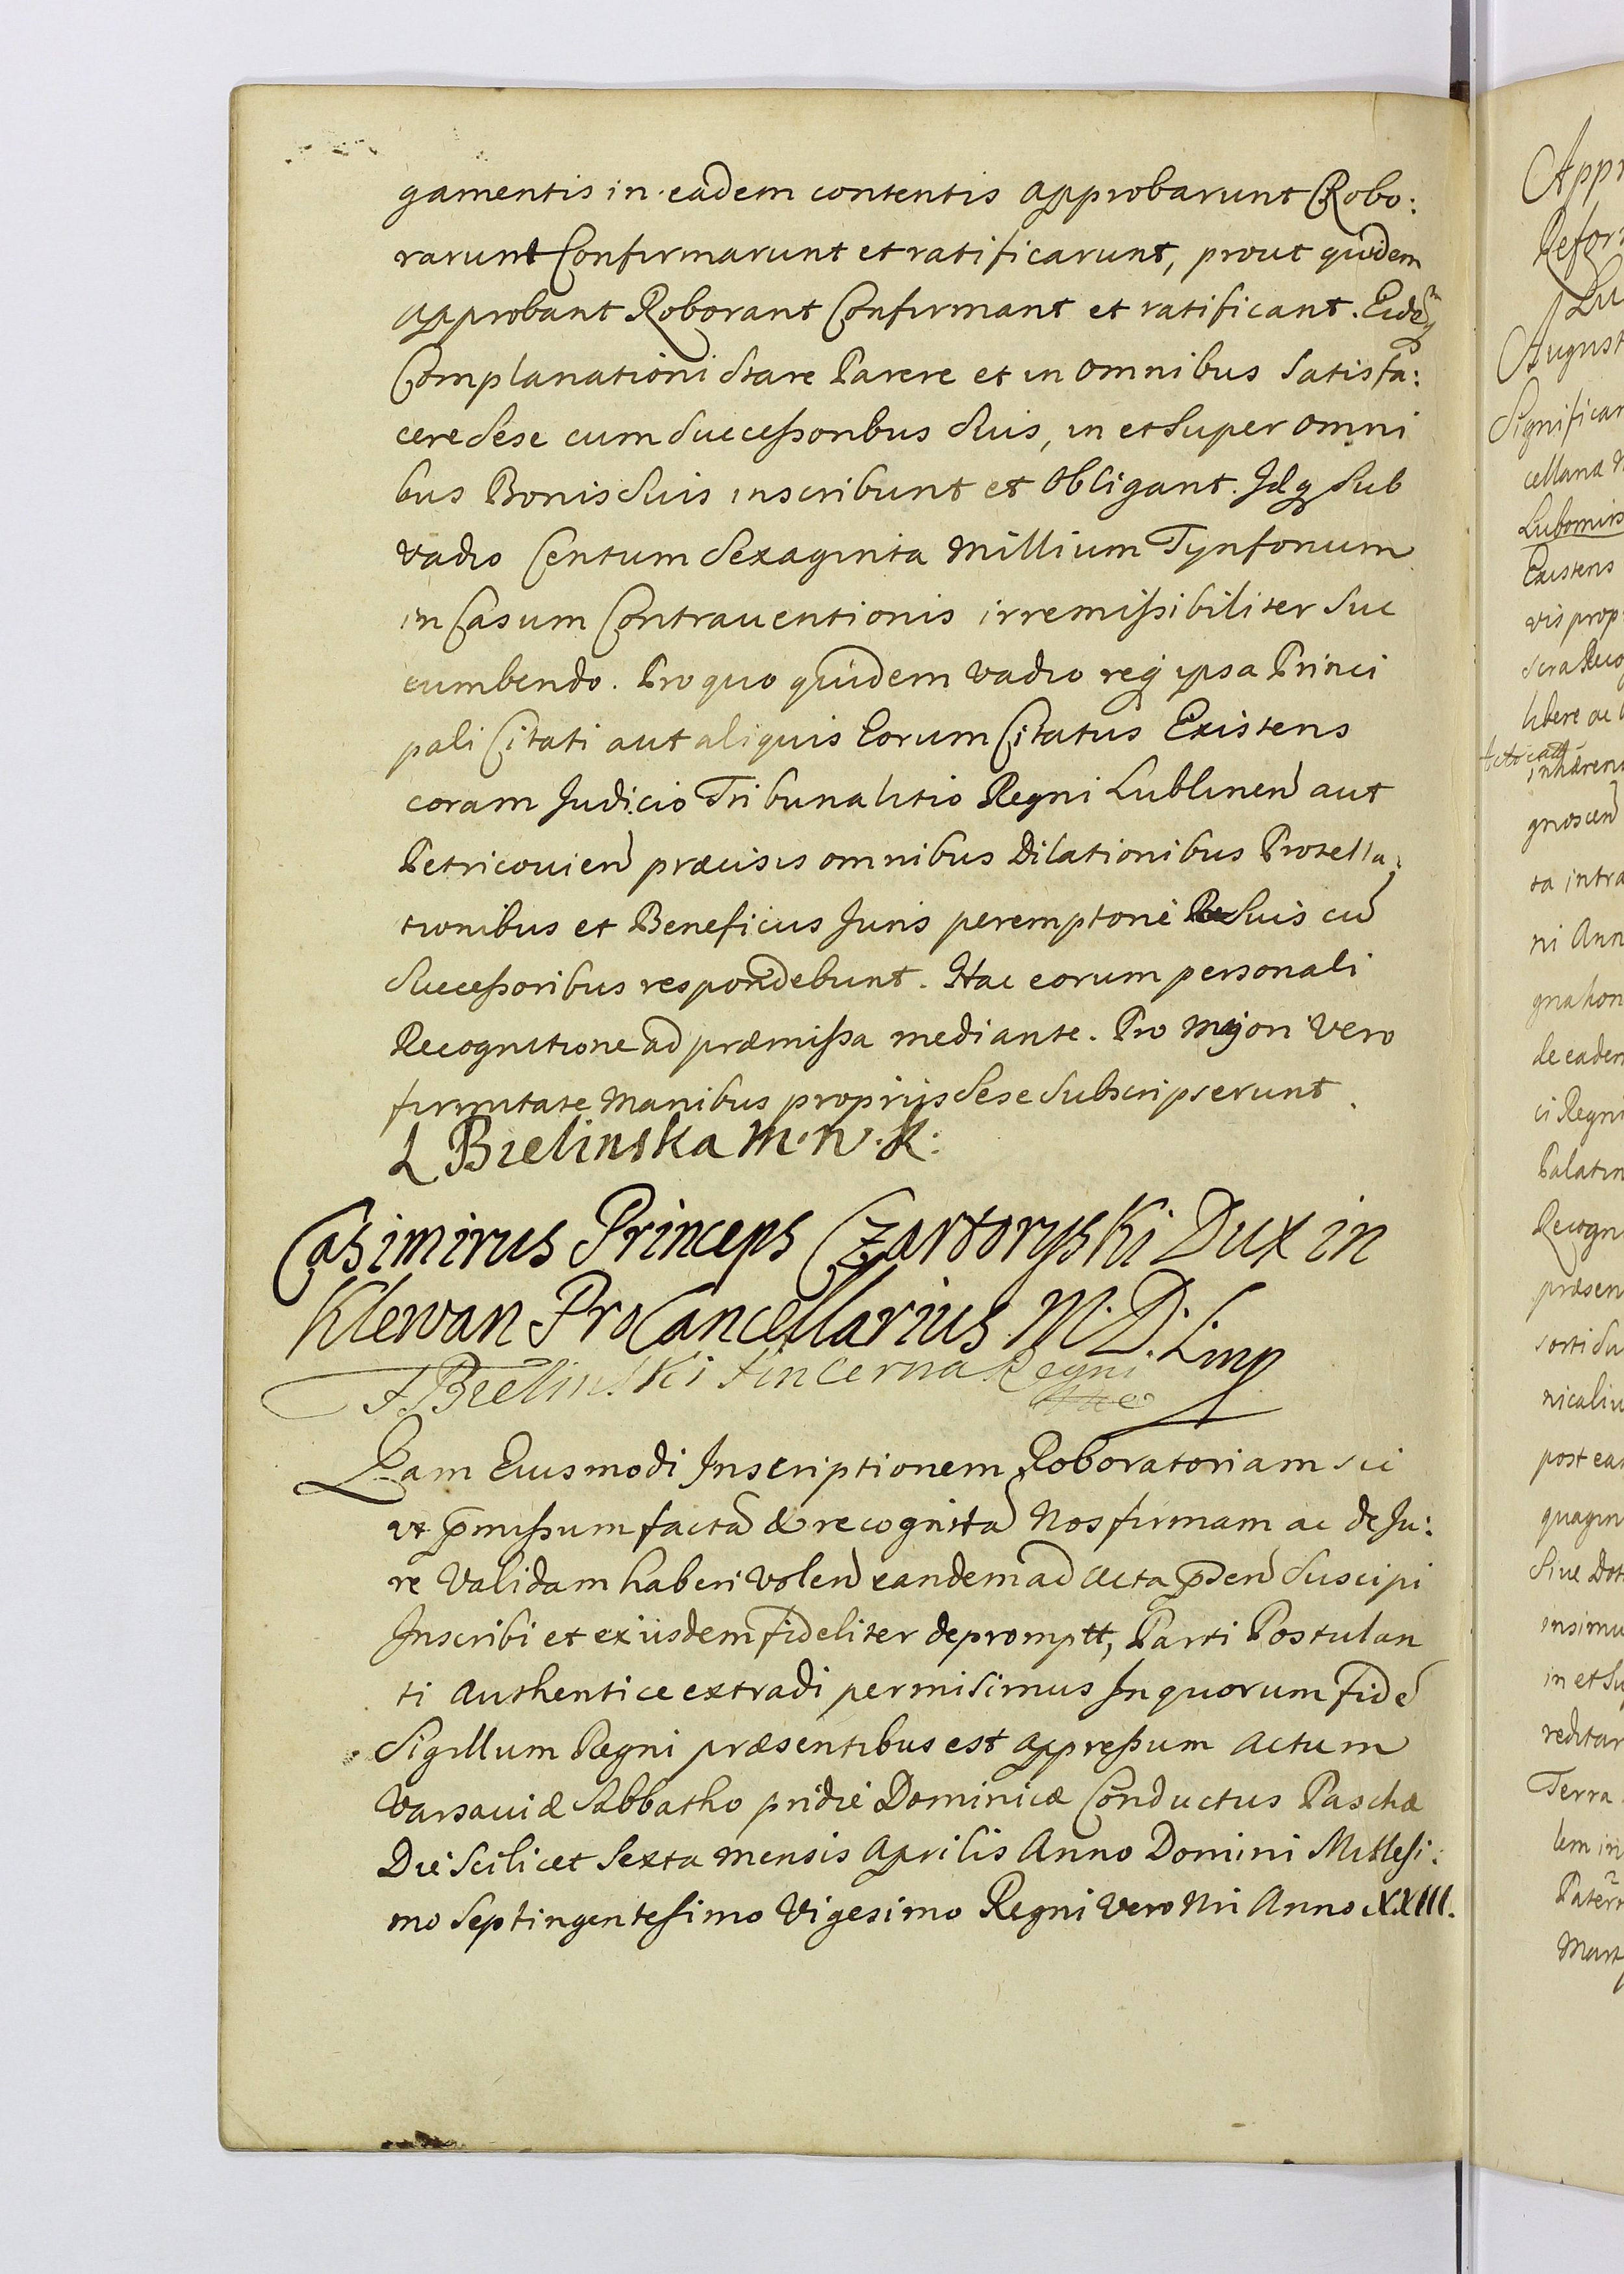 gamentis in eadem contentis approbarunt Robo:
rarunt Confirmarunt et ratificarunt, prout quidem
approbant Roborant Confirmant et ratificant. Eidemq
Complanationi Stare Parere et in omnibus Satisfa:
cere Sese cum Successoribus Suis, in et Super omni
bus Bonis Suis inscribunt et Obligant. Idq Sub
vadio Centum Sexaginta Millium Tynfonum
in Casum Contrauentionis irremissibiliter Suc
cumbendo. Pro quo quidem vadio req ipsa Princi
pali Citati aut aliquis Eorum Citatus Existens
coram Judicio Tribunalitio Regni Lublinen aut
Petricouien præcisis omnibus Dilationibus Protella:
tionibus et Beneficiis Juris peremptorie Suis cu
Successoribus respondebunt. Hac eorum personali
Recognitione ad præmissa mediante. Pro Majori vero
firmitate Manibus proprijs Sese Subscripserunt.
L Bielinska M. N. K:
Casimirus Princeps Czartoryski Dux in
Klewan ProCancellarius M. D. L mp
F Bielinski Pincerna Regni
Quam Eiusmodi Inscriptionem Roboratoriam sic
ut pmissum facta & recognita Nos firmam ac de Ju:
re Validam haberi volen eandem ad Acta pden Suscipi
Inscribi et ex iisdem fideliter depromptt, Parti Postulan
ti Authentice extradi permisimus In quorum fide
Sigillum Regni præsentibus est appressum Actum
Varsauiæ Sabbatho pridie Dominicæ Conductus Paschæ
Die Scilicet Sexta mensis Aprilis Anno Domini Millesi:
mo Septingentesimo Vigesimo Regni vero Nri Anno XXIII.
Appr
Refor
Lu
August
Significan
cellana
Lubomirs
Existens
vis prop
libere ac
inhæren
gnoscen
ta intra
ni Ann
de eadem
ci Regni
Palatin
Recogn
præsen
nicaliu
post ea
quagin
Siue Dot
insimu
in et Su
reditar
Terra
lem in
Patern
Mart